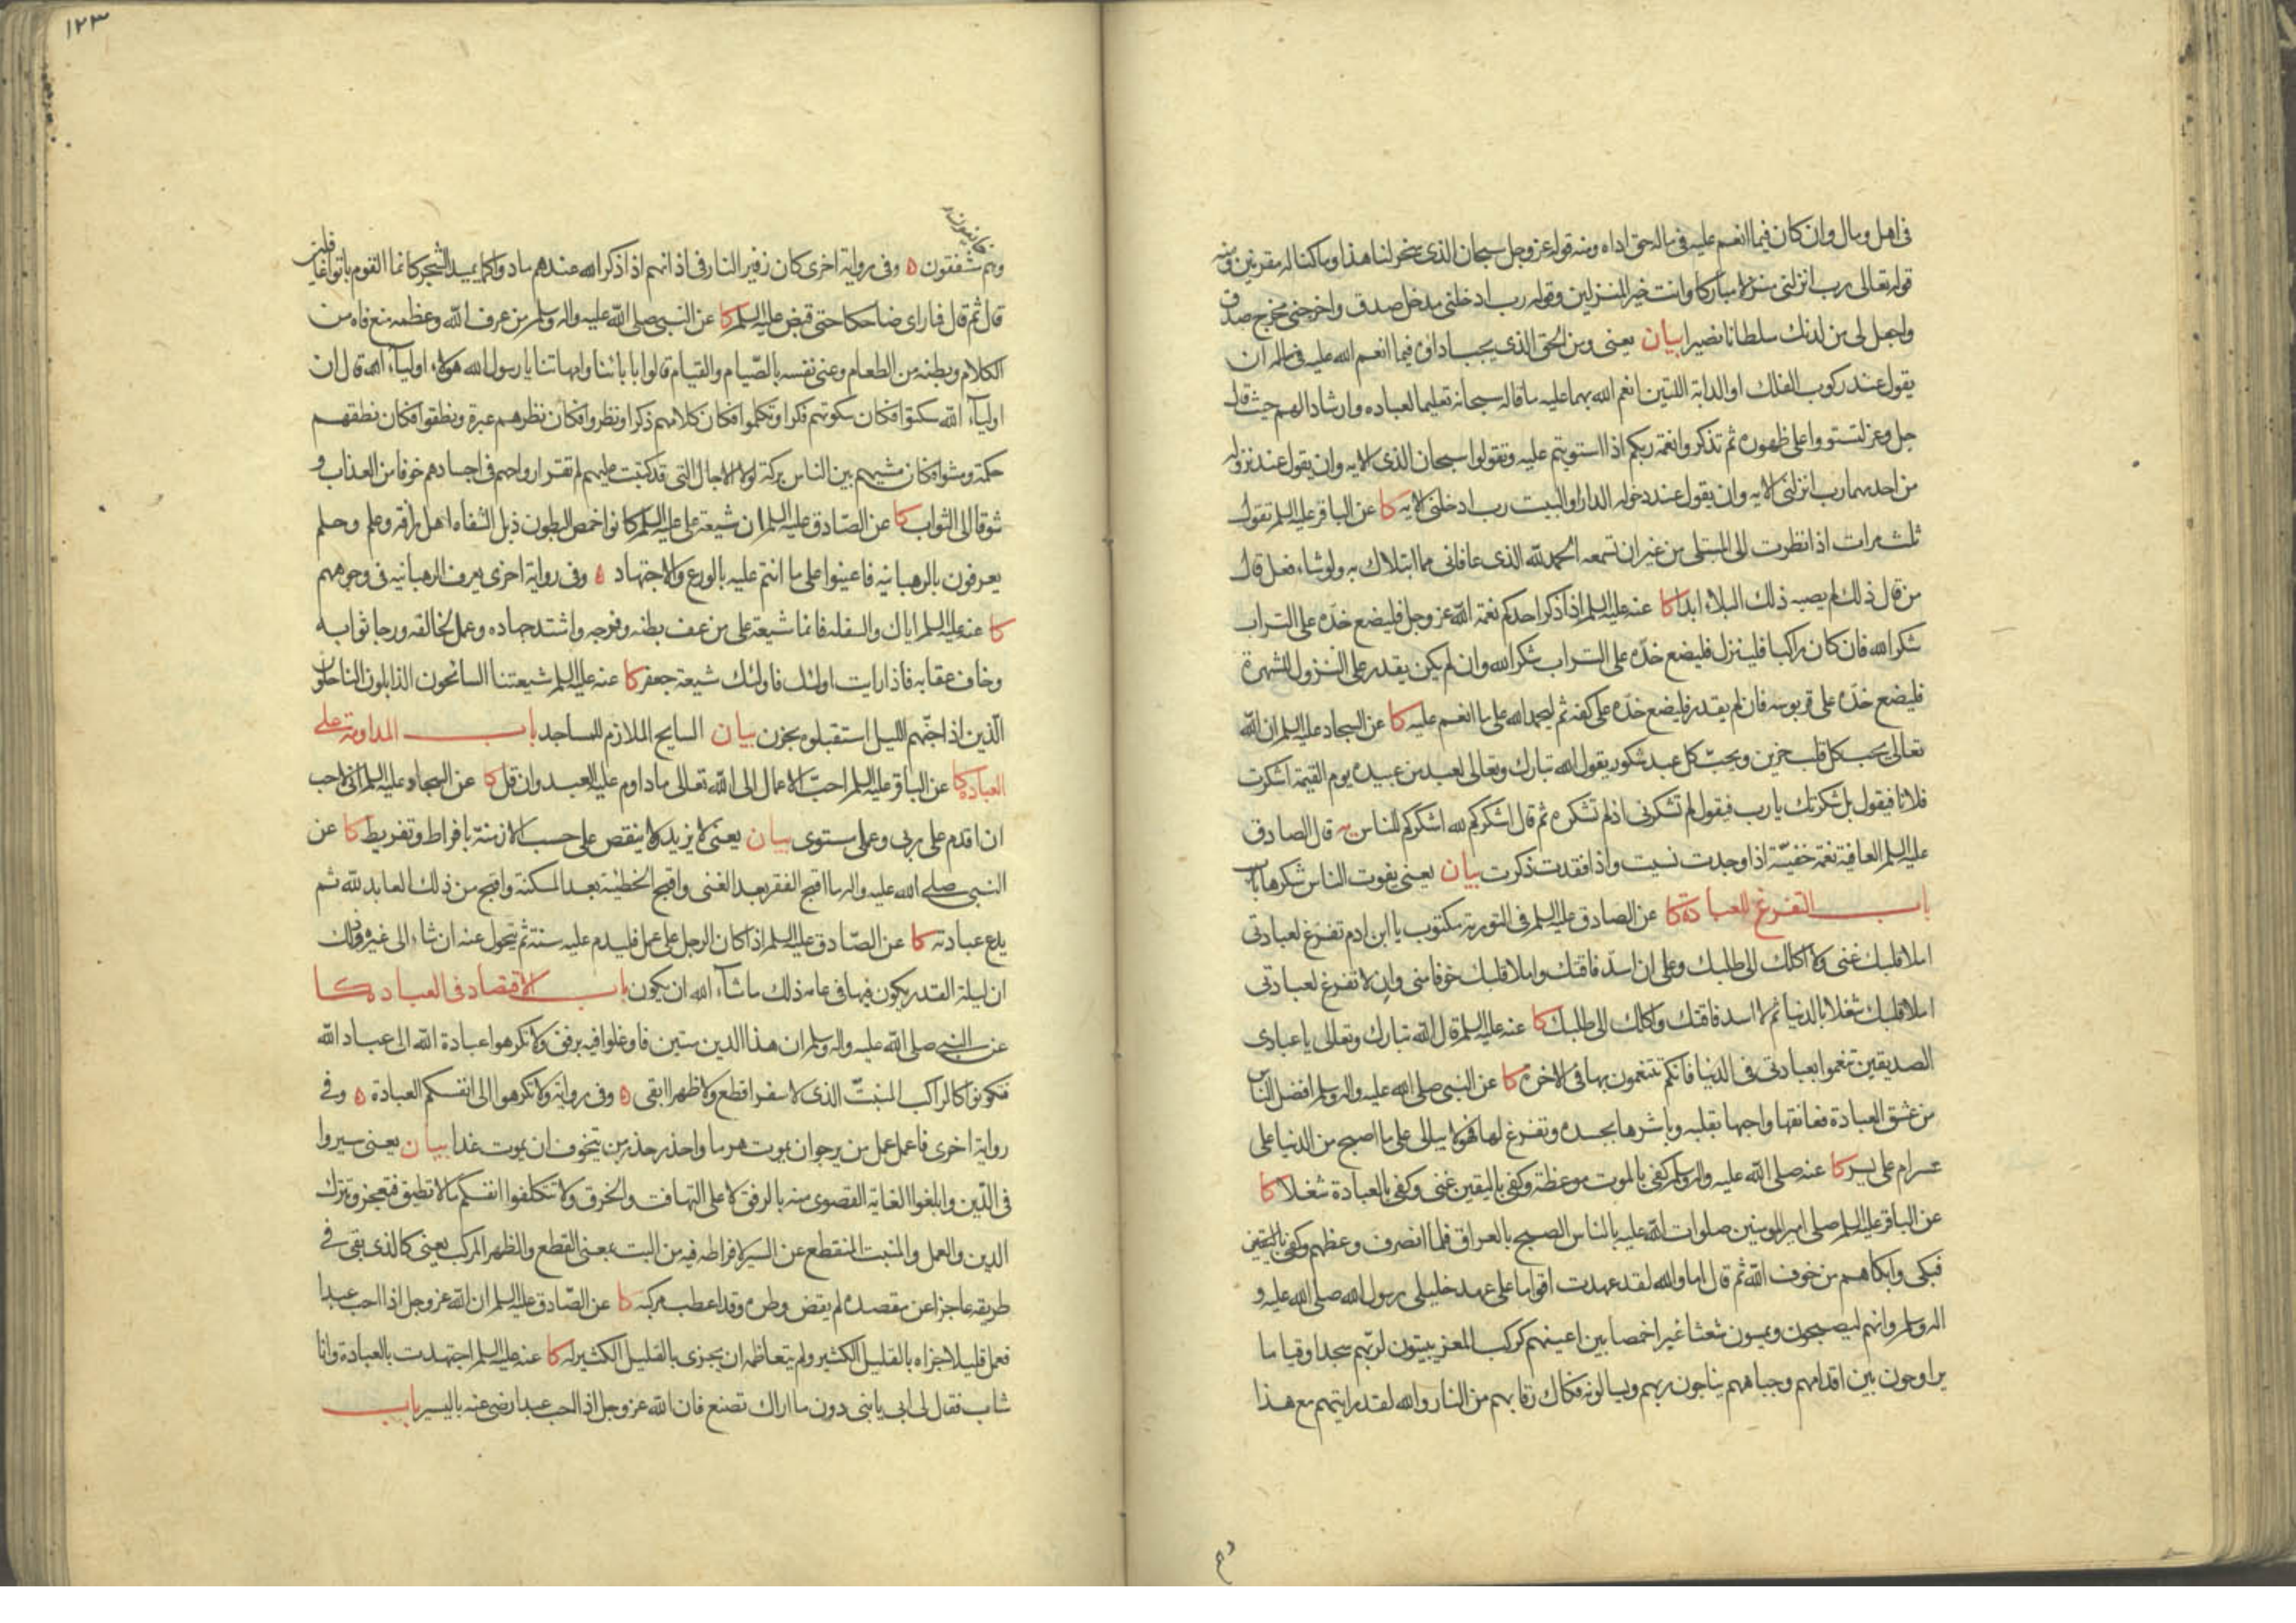 في اهل ومال وان كان فيما انعم عليه في ماله حق اداه ومنه قوله عز وجل سبحان الذي سخر لنا هذا وما كنا له مقرنين ومنه
قوله تعالى رب انزلني منزلا مباركا وانت خير المنزلين وقوله رب ادخلني مدخل صدق واخرجني مخرج صدق
واجعل لي من لدنك سلطانا نصيرا بيان يعني ومن الحق الذي يجب اداؤه فيما انعم الله عليه في ماله ان
يقول عند ركوب الفلك او الدابة اللتين انعم الله بهما عليه ما قاله سبحانه تعليما لعباده وارشادا لهم حيث قال
جل وعز لتستووا على ظهوره ثم تذكروا نعمة ربكم اذا استويتم عليه وتقولوا سبحان الذي الايه وان يقول عند نزوله
من احدهما رب انزلني الايه وان يقول عند دخوله الدار او البيت رب ادخلني الايه كا عن الباقر عليه السلم تقول
ثلث مرات اذا نظرت الى المبتلى من غير ان تسمعه الحمد لله الذي عافاني مما ابتلاك به ولو شاء فعل قال
من قال ذلك لم يصبه ذلك البلاء ابدا كا عنه عليه السلم اذا ذكر احدكم نعمة الله عز وجل فليضع خده على التراب
شكرا لله فان كان راكبا فلينزل فليضع خده على التراب شكرا لله وان لم يكن يقدر على النزول للشهرة
فليضع خده على قربوسه فان لم يقدر فليضع خده على كفه ثم ليحمد الله على ما انعم عليه كا عن السجاد عليه السلم ان الله
تعالى يحب كل قلب حزين ويحب كل عبد شكور يقول الله تبارك وتعالى لعبد من عبيده يوم القيمة اشكرت
فلانا فيقول بل شكرتك يا رب فيقول لم تشكرني اذ لم تشكره ثم قال اشكركم لله اشكركم للناس يه قال الصادق
عليه السلم العافية نعمة خفية اذا وجدت نسيت واذا فقدت ذكرت بيان يعني يفوت الناس شكرها باب
باب التفرغ للعبادة كا عن الصادق عليه السلم في التورية مكتوب يا ابن ادم تفرغ لعبادتي
املا قلبك غنى ولا اكلك الى طلبك وعلي ان اسد فاقتك واملا قلبك خوفا مني وان لا تفرغ لعبادتي
املا قلبك شغلا بالدنيا ثم لا اسد فاقتك واكلك الى طلبك كا عنه عليه السلم قال الله تبارك وتعالى يا عبادي
الصديقين تنعموا بعبادتي في الدنيا فانكم تتنعمون بها في الاخرة كا عن النبي صلى الله عليه واله وسلم افضل الناس
من عشق العبادة فعانقها واحبها بقلبه وباشرها بجسده وتفرغ لها فهو لا يبالي على ما اصبح من الدنيا على
عسر ام على يسر كا عنه صلى الله عليه واله وسلم كفى بالموت موعظة وكفى باليقين غنى وكفى بالعبادة شغلا كا
عن الباقر عليه السلم صلى امير المومنين صلوات الله عليه بالناس الصبح بالعراق فلما انصرف وعظهم وكفى باليقين
فبكى وابكاهم من خوف الله ثم قال اما والله لقد عهدت اقواما على عهد خليلي رسول الله صلى الله عليه و
اله وسلم وانهم ليصبحون ويمسون شعثا غبرا خمصا بين اعينهم كركب المعز يبيتون لربهم سجدا وقياما
يراوحون بين اقدامهم وجباههم يناجون ربهم ويسالونه فكاك رقابهم من النار والله لقد رايتهم مع هذا
١٢٣
خائفون
وهم مشفقون ه وفي رواية اخرى كان زفير النار في اذانهم اذا ذكر الله عندهم مادوا كما يميد الشجر كانما القوم باتوا غافلين
قال ثم قال فما راى ضاحكا حتى قبض عليه السلم كا عن النبي صلى الله عليه واله وسلم من عرف الله وعظمه منع فاه من
الكلام وبطنه من الطعام وعنى نفسه بالصيام والقيام قالوا بابائنا وامهاتنا يا رسول الله هؤلاء اولياء الله قال ان
اولياء الله سكتوا فكان سكوتهم فكرا وتكلموا فكان كلامهم ذكرا ونظروا فكان نظرهم عبرة ونطقوا فكان نطقهم
حكمة ومشوا فكان مشيهم بين الناس بركة لولا الاجال التي قد كتبت عليهم لم تقر ارواحهم في اجسادهم خوفا من العذاب و
شوقا الى الثواب كا عن الصادق عليه السلم ان شيعة علي عليه السلم كانوا خمص البطون ذبل الشفاه اهل رافة وعلم وحلم
يعرفون بالرهبانيه فاعينوا على ما انتم عليه بالورع والاجتهاد ه وفي رواية اخرى يعرف الرهبانيه في وجوههم
كا عنه عليه السلم اياك والسفله فانما شيعة علي من عف بطنه وفرجه واشتد جهاده وعمل لخالقه ورجا ثوابه
وخاف عقابه فاذا رايت اولئك فاولئك شيعة جعفر كا عنه عليه السلم شيعتنا السائحون الذابلون الناحلون
الذين اذا جنهم الليل استقبلوه بحزن بيان السايح الملازم للمساجد باب المداومة على
العبادة كا عن الباقر عليه السلم احب الاعمال الى الله تعالى ما داوم عليه العبد وان قل كا عن السجاد عليه السلم اني لاحب
ان اقدم على ربي وعملي مستوى بيان يعني لا يزيد ولا ينقص على حسب الازمنة بافراط وتفريط كا عن
النبي صلى الله عليه واله ما اقبح الفقر بعد الغنى واقبح الخطيئة بعد المسكنة واقبح من ذلك العابد لله ثم
يدع عبادته كا عن الصادق عليه السلم اذا كان الرجل على عمل فليدم عليه سنة ثم يتحول عنه ان شاء الى غيره وذلك
ان ليلة القدر يكون فيها في عامه ذلك ما شاء الله ان يكون باب الاقتصاد في العبادة كا
عن النبي صلى الله عليه واله وسلم ان هذا الدين متين فاوغلوا فيه برفق ولا تكرهوا عبادة الله الى عباد الله
فتكونوا كالراكب المنبت الذي لا سفرا قطع ولا ظهرا ابقى ه وفي رواية ولا تكرهوا الى انفسكم العبادة ه وفي
رواية اخرى فاعمل عمل من يرجو ان يموت هرما واحذر حذر من يتخوف ان يموت غدا بيان يعني سيروا
في الدين وابلغوا الغاية القصوى منه بالرفق لا على التهافت والخرق ولا تتكلفوا انفسكم ما لا تطيق فتعجز وتترك
الدين والعمل والمنبت المنقطع عن السير لافراطه فيه من البت بمعنى القطع والظهر المركب يعني كالذي بقي في
طريقه عاجزا عن مقصده لم يقض وطره وقد اعطب مركبه كا عن الصادق عليه السلم ان الله عز وجل اذا احب عبدا
فعمل قليلا جزاه بالقليل الكثير ولم يتعاظمه ان يجزى بالقليل الكثير له كا عنه عليه السلم اجتهدت بالعبادة وانا
شاب فقال لي ابي يا بني دون ما اراك تصنع فان الله عز وجل اذا احب عبدا رضي عنه باليسير باب
وهم